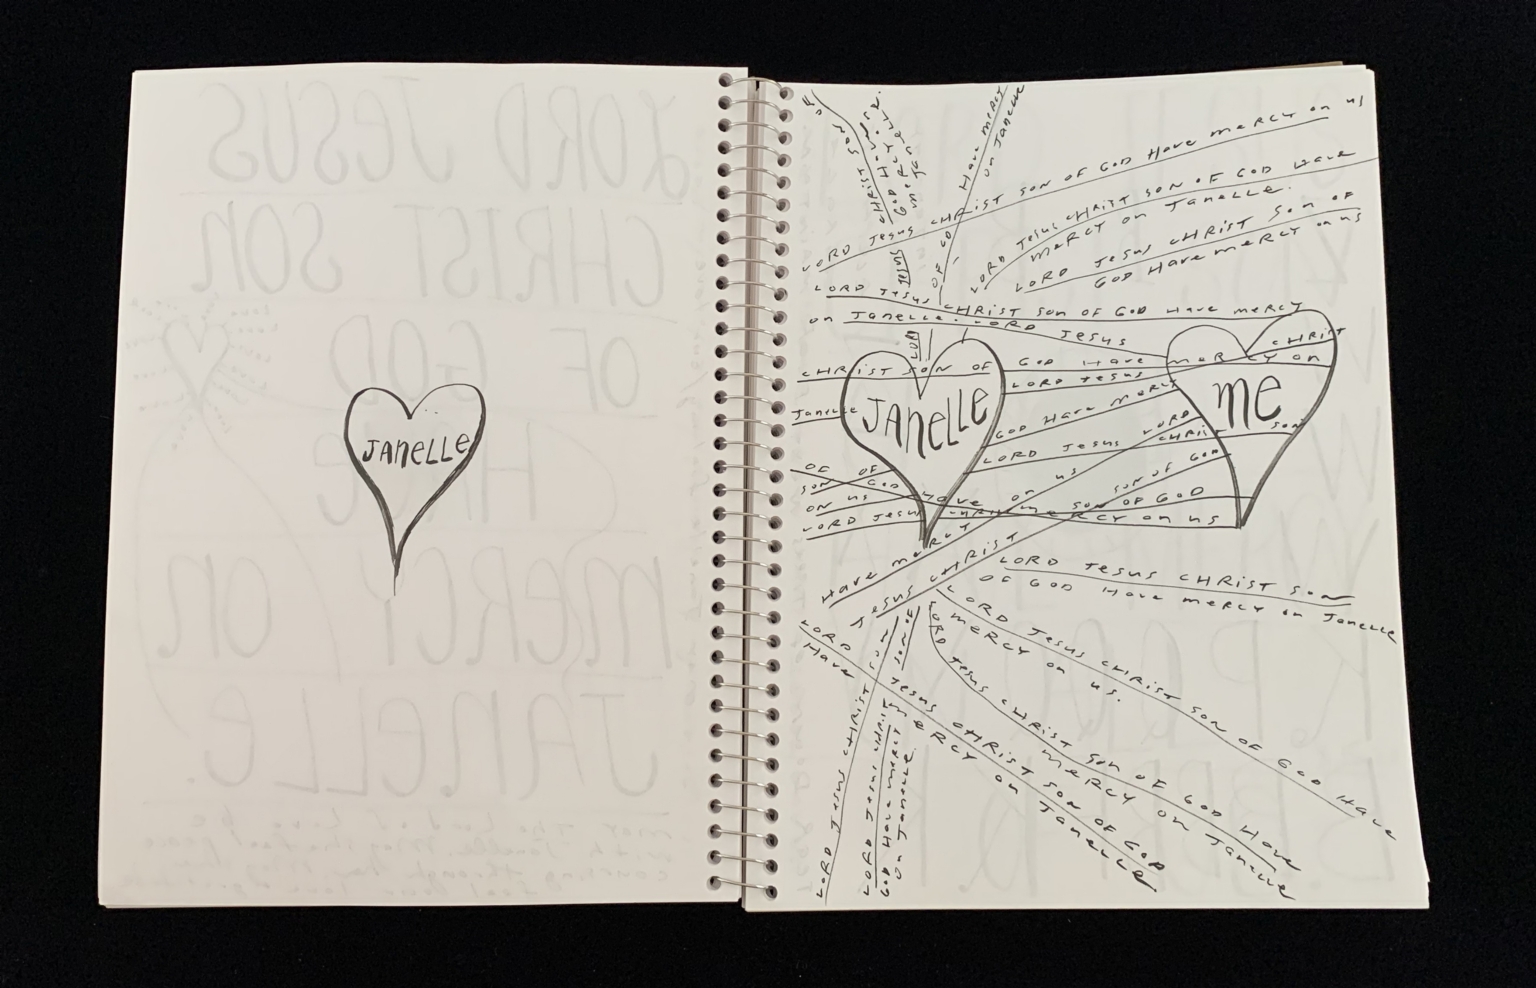 JANELLE
LORD JESUS CHRIST SON OF GOD HAVE MERCY ON US
HAVE MERCY
ON JANELLE
CHRIST SON
GOD HAVE
MERCY
LORD JESUS CHRIST SON OF GOD HAVE
MERCY ON JANELLE.
LORD JESUS CHRIST SON OF
GOD HAVE MERCY ON US
JESUS
OF
LORD JESUS CHRIST SON OF GOD HAVE MERCY
ON JANELLE. LORD JESUS CHRIST
LORD
CHRIST SON OF GOD HAVE MERCY ON
JANELLE
LORD JESUS
JANELLE
ME
GOD HAVE MERCY
LORD JESUS CHRIST SON
LORD
OF OF
SON GOD HAVE ON US
ON US
SON OF GOD
SON OF GOD
LORD JESUS CHRIST MERCY ON US
HAVE MERCY
JESUS CHRIST
LORD JESUS CHRIST SON
OF GOD HAVE MERCY ON JANELLE
LORD JESUS CHRIST SON OF GOD HAVE
MERCY ON US.
LORD JESUS CHRIST SON OF GOD HAVE
MERCY ON JANELLE
LORD JESUS CHRIST SON OF GOD
HAVE MERCY ON JANELLE.
LORD JESUS CHRIST SON
SON OF
LORD JESUS CHRIST
GOD HAVE MERCY
ON JANELLE.